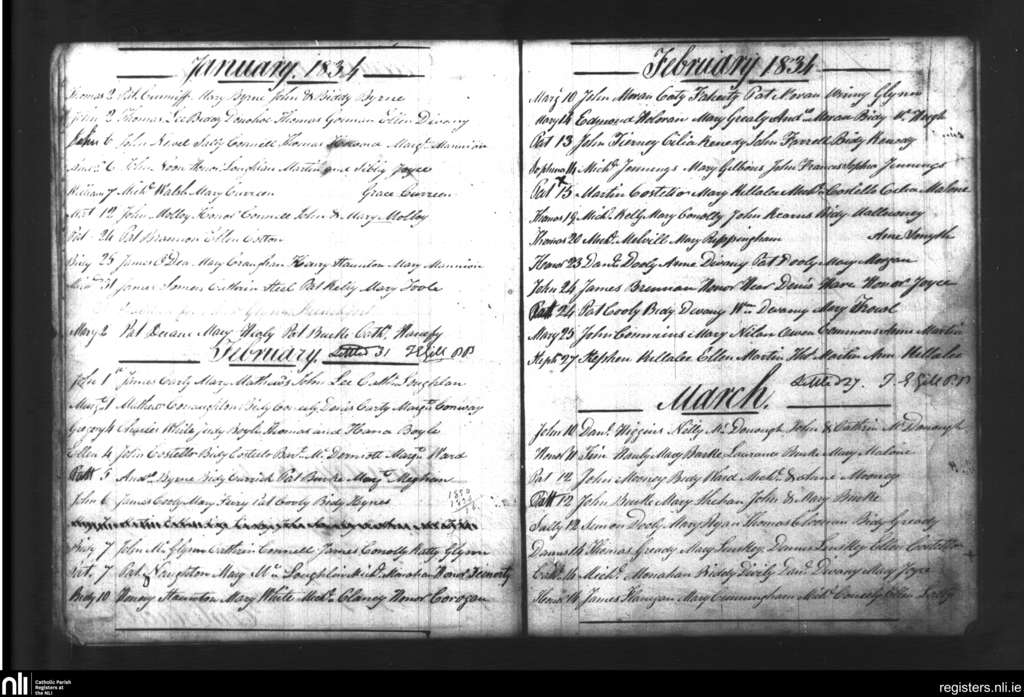 January. 1834
Thomas 2 Pat Cunniff Mary Byrne John & Biddy Byrne
John 2 Thomas Lee Biddy Donohoe Thomas Gorman Ellen Divany
John 6 John Nevel Sally Connell Thomas Marg. Mannion
6 John Noon Honor Loughlin Martin and Sibby Joyce
William 7 Mich. Walsh Mary Curreen Grace Curreen
Mat 12 John Molloy Honor Connell John & Mary Molloy
Pat 24 Pat Brannon Ellen Cotton
Bidy 25 James O Dea Mary Geraghan Henry Staunton Mary Mannion
31 James Somers Cathrin Steel Pat Kelly Mary Toole
Mary 2 Pat Duane Mary Healy Pat Burke Cath.
February. Settled 31 Gill P.P
John 1 James Curly Mary Mathews John Lee Cath. Loughlan
Marg. 1 Mathew Conaughton Bidy Concely Denis Curly Marg. Conway
Gregory 4 Charles White Judy Boyle Thomas and Hanra Boyle
Ellen 4 John Costello Bidy Costelo Bar. Mc Dermott Marg. Ward
Patt 5 And. Byrne Bidy Carrick Pat Burke Marg. Meghan
John 6 James Cooly Mary Fairy Pat Cooly Bidy Hynes
Bidy 7 John Mc Glynn Cathrin Connell James Conolly Katty Glynn
Pat. 7 Pat Naughton Mary Mc Loughlin Mich. Monahan Honor Feenerty
Bidy 10 Henry Staunton Mary White Mich. Clancy Honor Corogan
February 1834
Mary 10 John Moran Caty Faherty Pat Moran Winny Glynn
Mary 14 Edmond Holoran Mary Grealy And. Moran Bidy
Pat 13 John Tierney Celia Kenedy John Farrell Bidy Kenedy
Sephna 14 Mich. Jennings Mary Gibbons John Francis Sepha Jennings
Pat 15 Martin Costello Mary Hellalee Mich. Costello Celia Malone
Thomas 19 Mich. Kelly Mary Conolly John Kearns Bidy Mulloowney
Thomas 20 Mich. Melvill Mary Reppingham Anne Smyth
Honor 23 Dan. Dooly Anne Divany Pat Dooly Mary Mogan
John 24 James Brennan Honor Wear Denis Ware Honor Joyce
Patt 24 Pat Cooly Bidy Divany Wm Divany Mary Trowl
Mary 25 John Commins Mary Nilan Owen Commons Anne Martin
Steph 27 Stephen Hellalee Ellen Martin Tho. Martin Ann Hellalee
Settled 27. Gill P.P
March.
John 10 Dan. Higgins Nelly Mc Donough John & Cathrin Mc Donough
Honor 11 Hanly Mary Burke Laurance Burke Mary Malone
Pat 12 John Mooney Bidy Ward Mich. & Anne Mooney
Patt 12 John Burke Mary Shehan John & Mary Burke
Sally 12 Simon Dooly Mary Ryan Thomas Cloonan Bidy Gready
Dennis 14 Thomas Gready Mary Lenskey Dennis Lenskey Ellen Costello
Cath. 14 Mich. Monahan Biddy Divily Dan. Divany Mary Joyce
Honor 14 James Flanigan Mary Cunningham Mich. Concely Ellen Lally
nli
Catholic Parish
Registers at
the NLI
registers.nli.ie